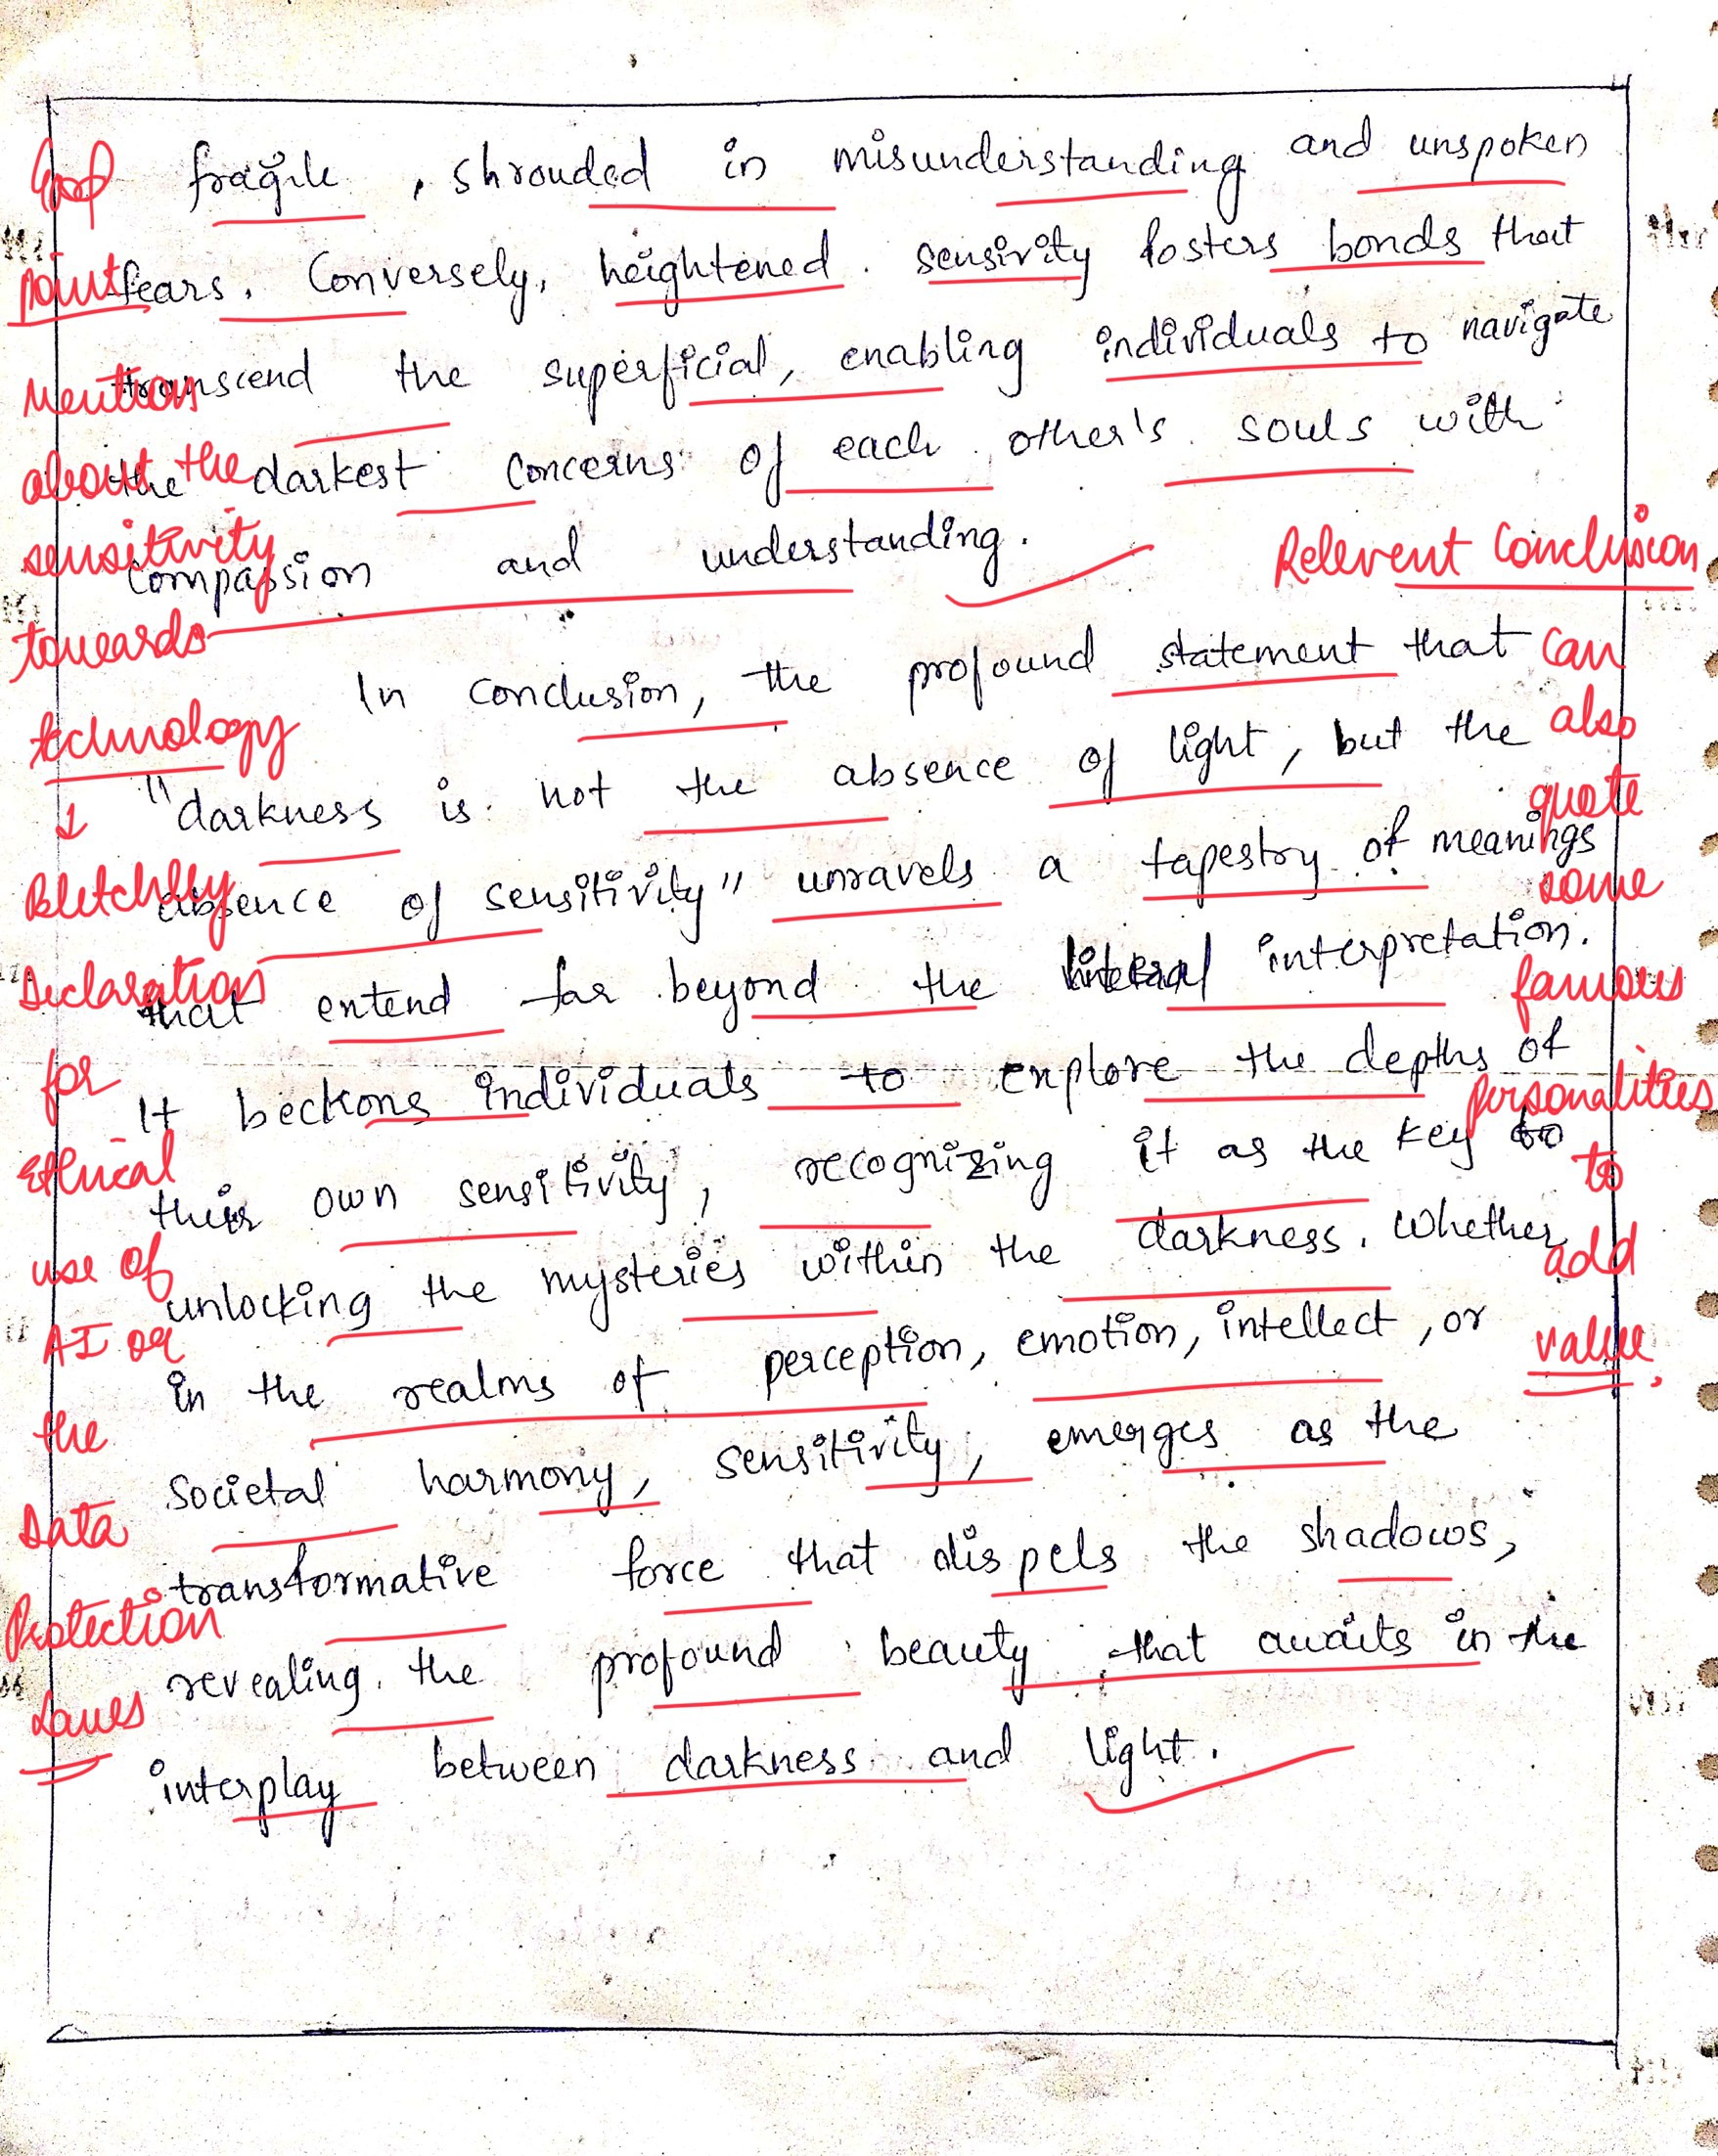 fragile, shrouded in misunderstanding and unspoken
fears. Conversely, heightened sensivity fosters bonds that
transcend the superficial, enabling individuals to navigate
the darkest concerns of each other's souls with
compassion and understanding.
In conclusion, the profound statement that
"darkness is not the absence of light, but the
absence of sensitivity" unravels a tapestry of meanings
that extend far beyond the literal interpretation.
It beckons individuals to explore the depths of
their own sensitivity, recognizing it as the key to
unlocking the mysteries within the darkness. Whether
in the realms of perception, emotion, intellect, or
societal harmony, sensitivity, emerges as the
transformative force that dispels the shadows,
revealing the profound beauty that awaits in the
interplay between darkness and light.
Good
point
Mention
about the
sensitivity
towards
technology
↓
Bletchlly
Declaration
for
Ethical
use of
AI or
the
Data
Protection
Laws
Relevent Conclusion
can
also
quote
some
famous
personalities
to
add
value.